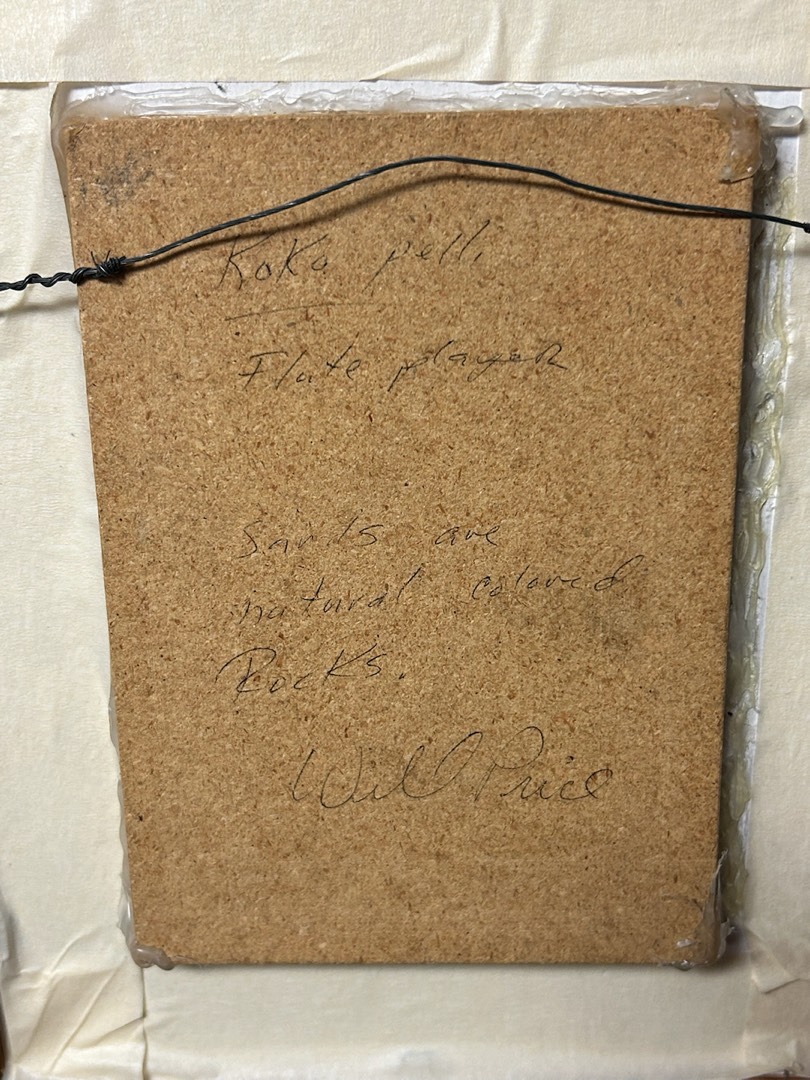 KoKo pelli
Flute playeR
Sands are
natural colored
Rocks.
Will Price